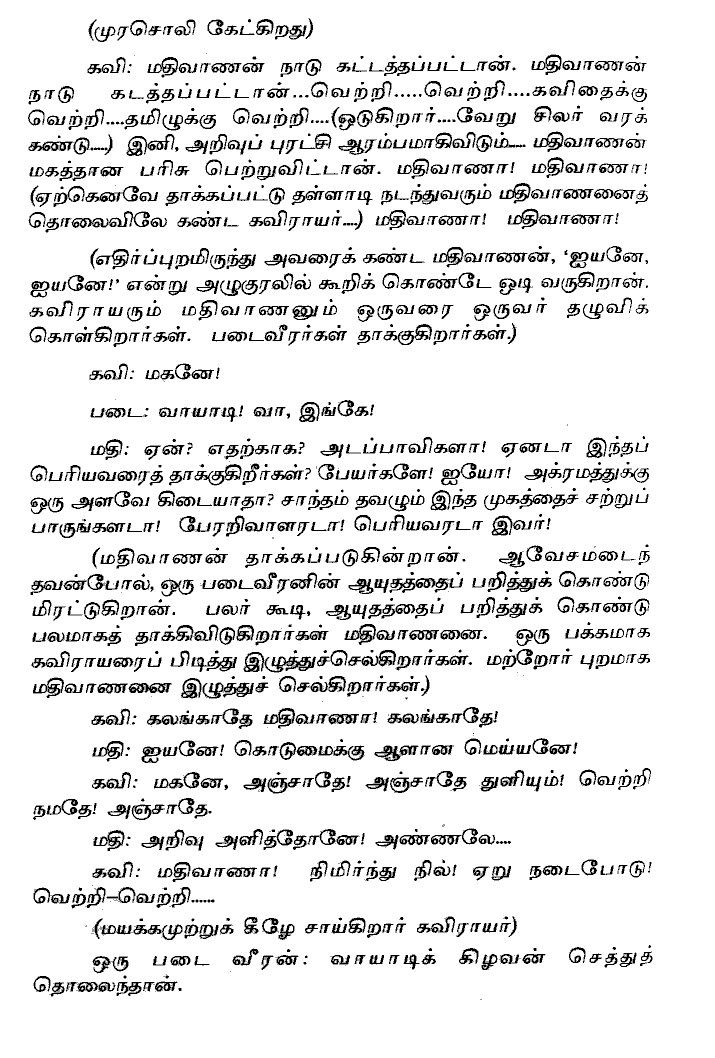 (முரசொலி கேட்கிறது)
கவி: மதிவாணன் நாடு கட்டத்தப்பட்டான். மதிவாணன்
நாடு கடத்தப்பட்டான்...வெற்றி.....வெற்றி....கவிதைக்கு
வெற்றி....தமிழுக்கு வெற்றி....(ஓடுகிறார்....வேறு சிலர் வரக்
கண்டு....) இனி, அறிவுப் புரட்சி ஆரம்பமாகிவிடும்..... மதிவாணன்
மகத்தான பரிசு பெற்றுவிட்டான். மதிவாணா! மதிவாணா!
(ஏற்கெனவே தாக்கப்பட்டு தள்ளாடி நடந்துவரும் மதிவாணனைத்
தொலைவிலே கண்ட கவிராயர்....) மதிவாணா! மதிவாணா!
(எதிர்ப்புறமிருந்து அவரைக் கண்ட மதிவாணன், 'ஐயனே,
ஐயனே!' என்று அழுகுரலில் கூறிக் கொண்டே ஓடி வருகிறான்.
கவிராயரும் மதிவாணனும் ஒருவரை ஒருவர் தழுவிக்
கொள்கிறார்கள். படைவீரர்கள் தாக்குகிறார்கள்.)
கவி: மகனே!
படை: வாயாடி! வா, இங்கே!
மதி: ஏன்? எதற்காக? அடப்பாவிகளா! ஏனடா இந்தப்
பெரியவரைத் தாக்குகிறீர்கள்? பேயர்களே! ஐயோ! அக்ரமத்துக்கு
ஒரு அளவே கிடையாதா? சாந்தம் தவழும் இந்த முகத்தைச் சற்றுப்
பாருங்களடா! பேரறிவாளரடா! பெரியவரடா இவர்!
(மதிவாணன் தாக்கப்படுகின்றான். ஆவேசமடைந்
தவன்போல், ஒரு படைவீரனின் ஆயுதத்தைப் பறித்துக் கொண்டு
மிரட்டுகிறான். பலர் கூடி, ஆயுதத்தைப் பறித்துக் கொண்டு
பலமாகத் தாக்கிவிடுகிறார்கள் மதிவாணனை. ஒரு பக்கமாக
கவிராயரைப் பிடித்து இழுத்துச்செல்கிறார்கள். மற்றோர் புறமாக
மதிவாணனை இழுத்துச் செல்கிறார்கள்.)
கவி: கலங்காதே மதிவாணா! கலங்காதே!
மதி: ஐயனே! கொடுமைக்கு ஆளான மெய்யனே!
கவி: மகனே, அஞ்சாதே! அஞ்சாதே துளியும்! வெற்றி
நமதே! அஞ்சாதே.
மதி: அறிவு அளித்தோனே! அண்ணலே....
கவி: மதிவாணா! நிமிர்ந்து நில்! ஏறு நடைபோடு!
வெற்றி-வெற்றி......
(மயக்கமுற்றுக் கீழே சாய்கிறார் கவிராயர்)
ஒரு படை வீரன்: வாயாடிக் கிழவன் செத்துத்
தொலைந்தான்.